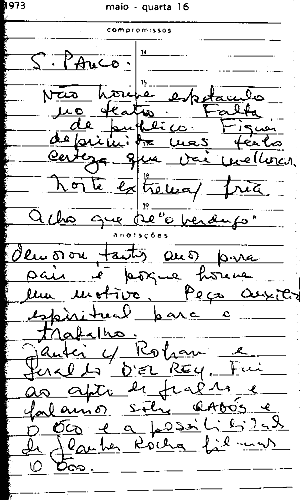 1973 maio - quarta 16
compromissos
14
S. PAULO.
15
Não houve espetáculo
no teatro. Falta
de público. Fiquei
deprimida mas tenho
certeza que vai melhorar
18
Noite extrema/ fria
19
Acho que se "o verdugo"
anotações
demorou tantos anos para
sair é porque houve
um motivo. Peço auxílio
espiritual para o
trabalho.
Jantei c/ Rofran e
Geraldo D'EL REY. Fui
ao apto de Geraldo e
falamos sobre e
o Oco e a possibilidade
de Glauber Rocha filmar
o Oco.